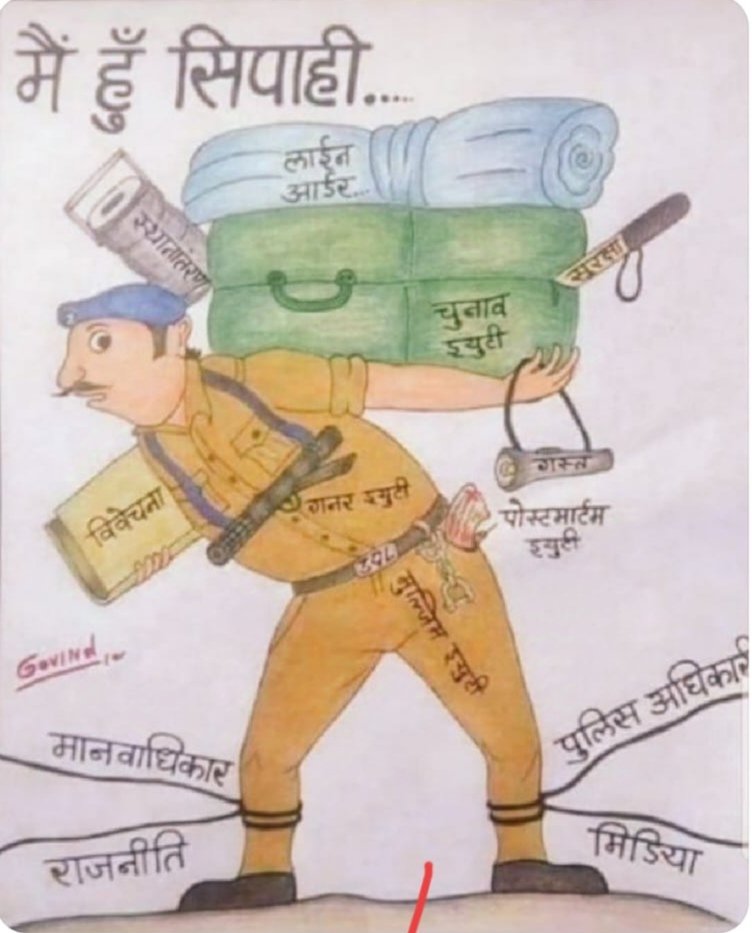 मैं हुँ सिपाही.....
लाईन
आर्डर...
स्थानांतरण
सुरक्षा
चुनाव
ड्युटी
गस्त
विवेचना
गनर ड्युटी
पोस्टमार्टम
ड्युटी
मुल्जिम ड्युटी
GOVINd
मानवाधिकार
पुलिस अधिकारी
राजनीति
मिडिया